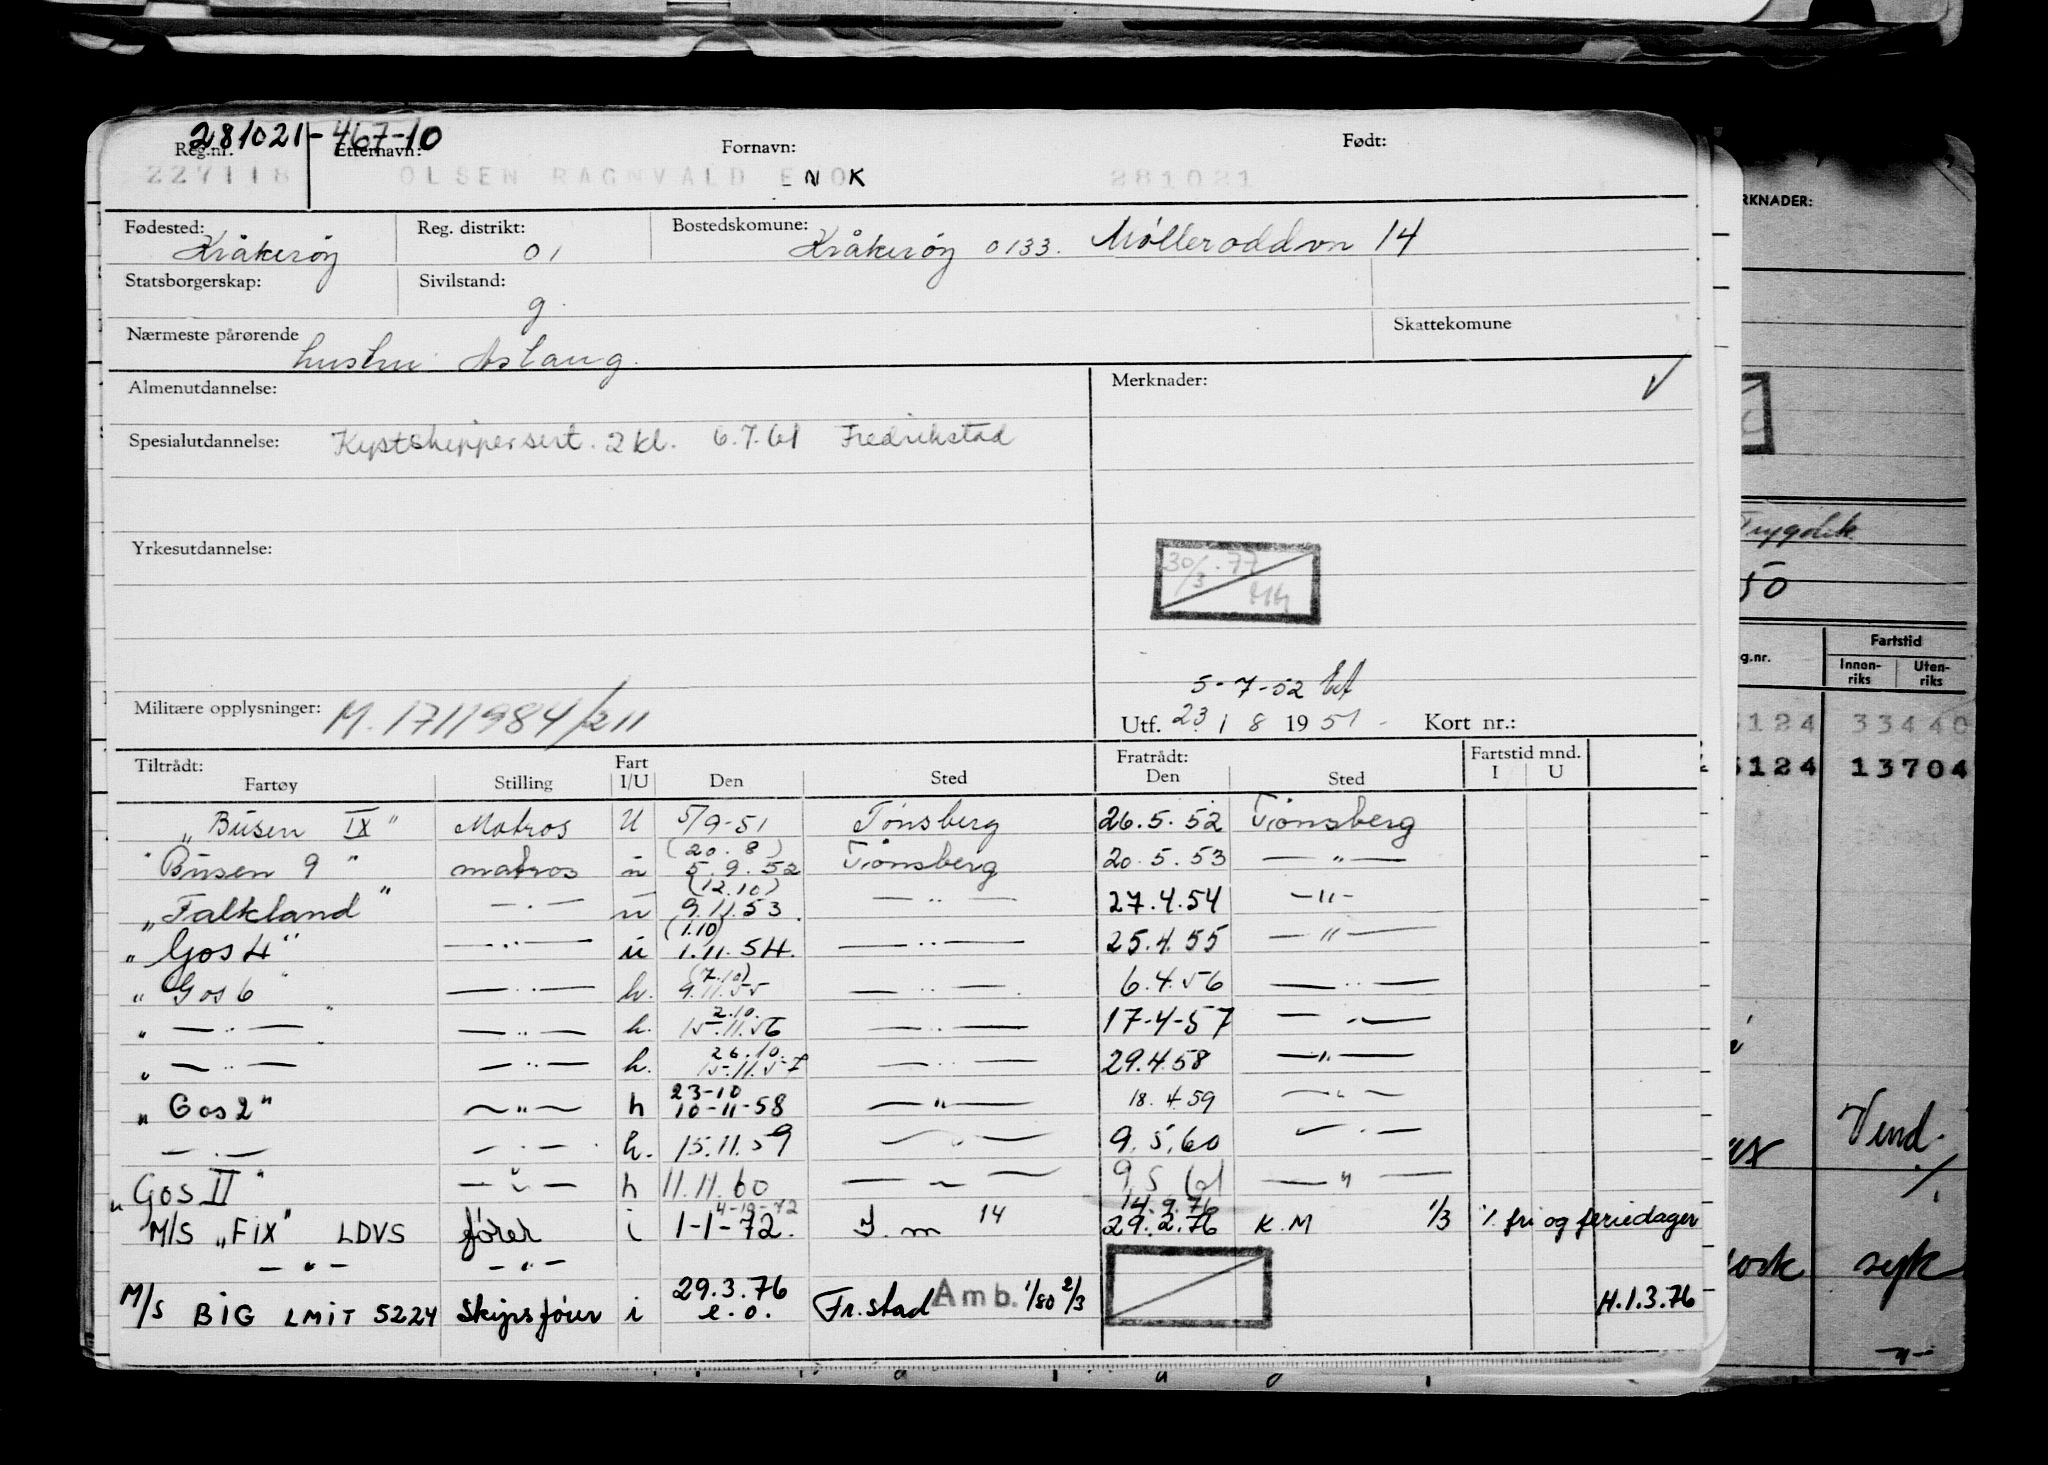 281021-467-10
Reg.nr. Etternavn: Fornavn: Født:
227118 OLSEN RAGNVALD ENOK 281021
Fødested: Reg. distrikt: Bostedskomune:
Kråkerøy 01 Kråkerøy 0133. Mølleroddvn 14
Statsborgerskap: Sivilstand:
g.
Nærmeste pårørende Skattekomune
hustru Aslaug.
Almenutdannelse: Merknader:
Spesialutdannelse: Kystskippersert. 2 kl. 6.7.61 Fredrikstad
Yrkesutdannelse:
30/3.77
5-7-52
Militære opplysninger: M. 1711984/211 Utf. 23 / 8 1951 Kort nr.:
Tiltrådt: Fart Fratrådt: Fartstid mnd.
Fartøy Stilling I/U Den Sted Den Sted I U
"Busen IX" Matros U 5/9-51 Tønsberg 26.5.52 Tønsberg
(20.8)
"Busen 9" matros u 5.9.52 Tønsberg 20.5.53 —"—
(12.10)
"Falkland" —"— u 9.11.53. —"— 27.4.54 —"—
(1.10)
"Gos 4" —"— u 1.11.54. —"— 25.4.55 —"—
(7.10)
"Gos 6" —"— h. 9.11.55 —"— 6.4.56 —"—
2.10.
"—"—" —"— h. 15.11.56 —"— 17-4-57 —"—
26.10.
"—"— —"— h. 15.11.57 —"— 29.4.58 —"—
23-10
"Gos 2" —"— h 10-11-58 —"— 18.4.59 —"—
—"— —"— h. 15.11.59 —"— 9.5.60 —"—
"Gos II" —"— h 11.11.60 —"— 9.5.61 —"—
4-10-72 14.9.76
M/S "FIX" LDVS fører i 1-1-72. I.m 14 29.2.76 K.M 1/3 % fri og feriedager
—"— —"—
29.3.76
M/S BIG LMIT 5224 Skipsfører i e.o. Fr.stad Amb. 1/80 2/3 H.1.3.76
RKNADER:
Trygdek
50
g.nr. Fartstid
Innen-riks Uten-riks
5124 33440
5124 13704
Vend.
syk
—"—